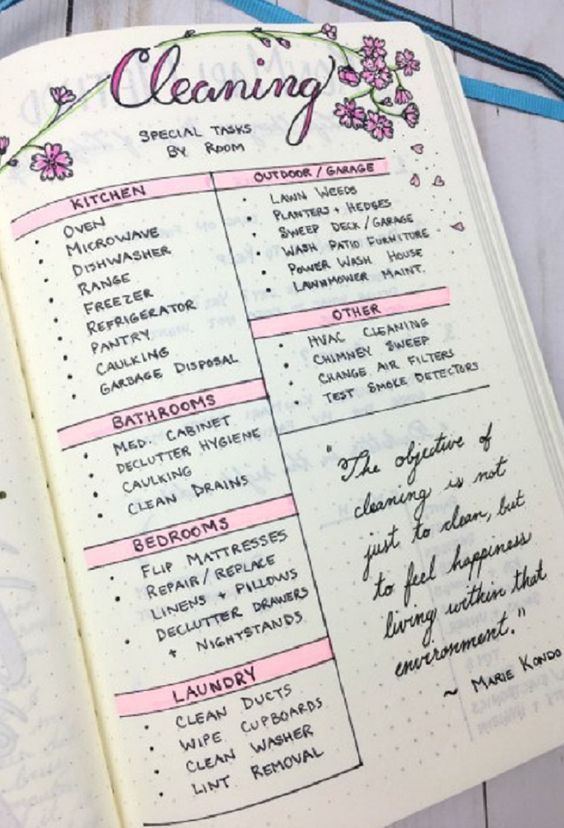 Cleaning
SPECIAL TASKS
BY ROOM
KITCHEN
• OVEN
• MICROWAVE
• DISHWASHER
• RANGE
• FREEZER
• REFRIGERATOR
• PANTRY
• CAULKING
• GARBAGE DISPOSAL
BATHROOMS
• MED. CABINET
• DECLUTTER HYGIENE
• CAULKING
• CLEAN DRAINS
BEDROOMS
• FLIP MATTRESSES
• REPAIR/REPLACE
LINENS + PILLOWS
• DECLUTTER DRAWERS
+ NIGHTSTANDS
LAUNDRY
• CLEAN DUCTS
• WIPE CUPBOARDS
• CLEAN WASHER
• LINT REMOVAL
OUTDOOR/GARAGE
• LAWN WEEDS
• PLANTERS + HEDGES
• SWEEP DECK/GARAGE
• WASH PATIO FURNITURE
• POWER WASH HOUSE
• LAWNMOWER MAINT.
OTHER
• HVAC CLEANING
• CHIMNEY SWEEP
• CHANGE AIR FILTERS
• TEST SMOKE DETECTORS
"The objective of
cleaning is not
just to clean, but
to feel happiness
living within that
environment."
~ MARIE KONDO